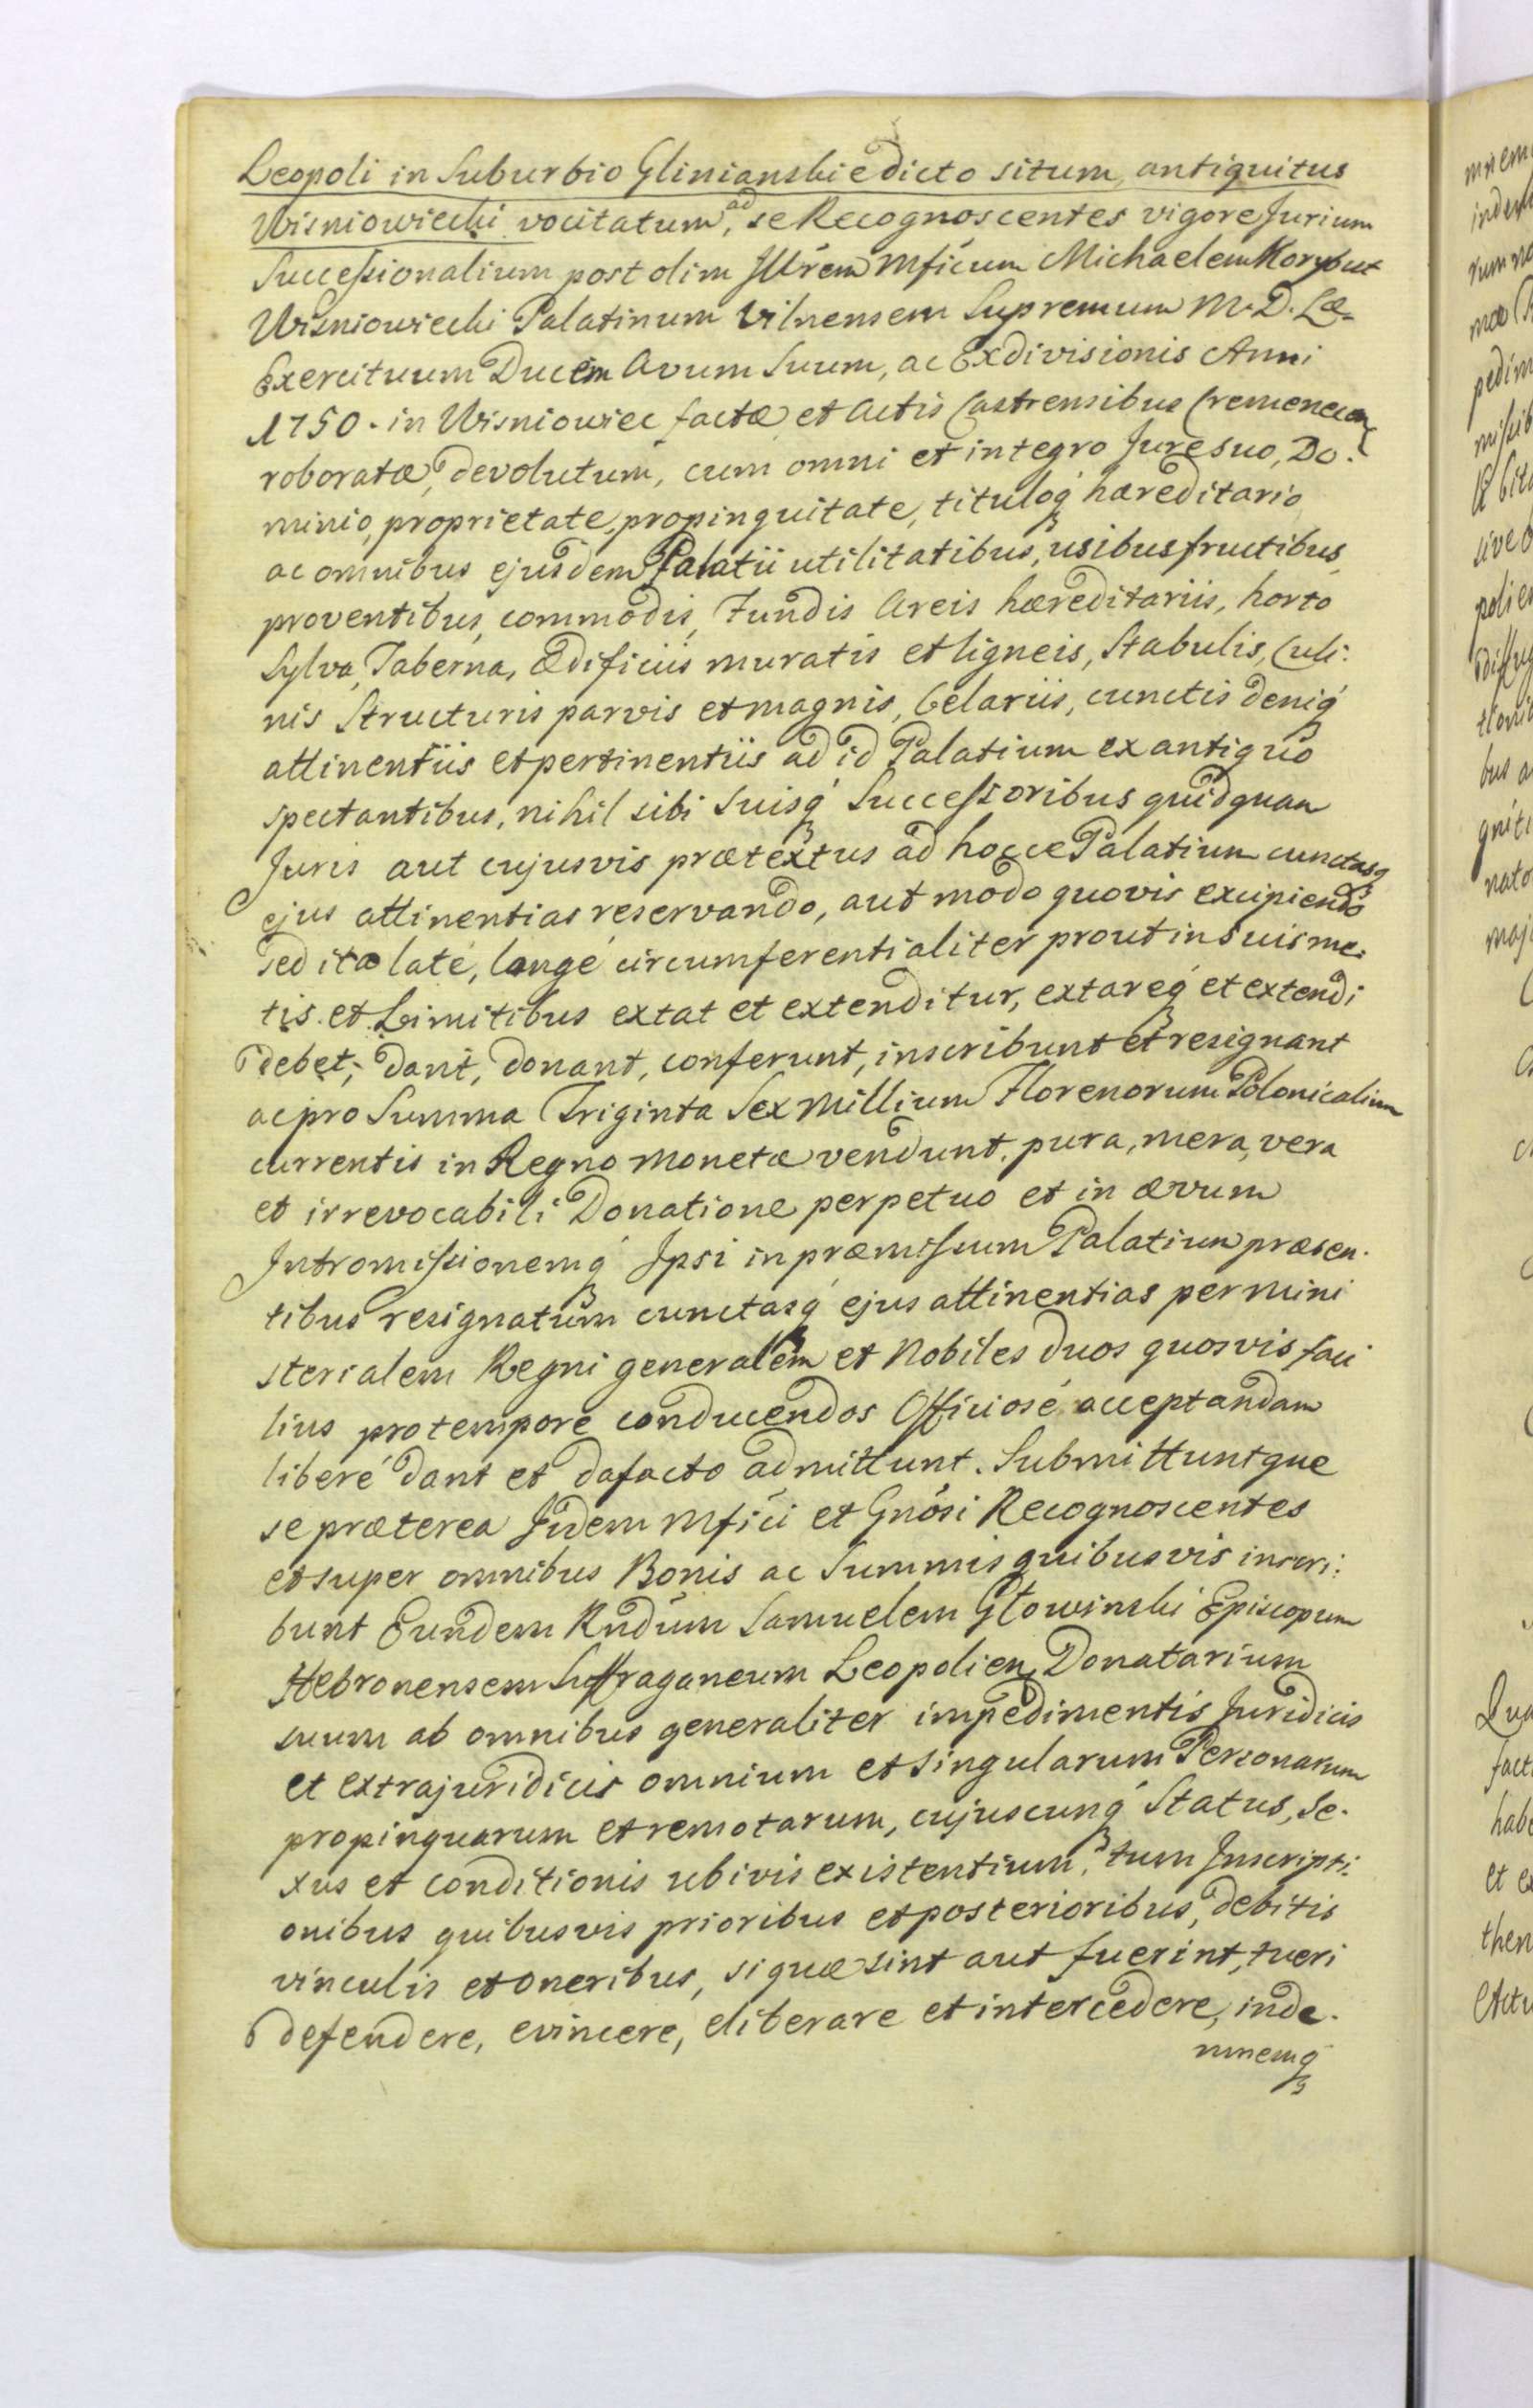 Leopoli in Suburbio Glinianskie dicto situm, antiquitus
Wisniowiecki vocitatum, ad se Recognoscentes vigore Jurium
Successionalium post olim Jllrem Mficum Michaelem Korybut
Wisniowiecki Palatinum Vilnensem Supremum M. D. Læ.
Exercituum Ducem Avum Suum, ac Exdivisionis Anni
1750. in Wisniowiec factæ et Actis Castrensibus Cremenecen
roboratæ, devolutum, cum omni et integro Jure suo, Do.
minio, proprietate, propinquitate, tituloq hæreditario
ac omnibus ejusdem Palatii utilitatibus, usibusfructibus,
proventibus, commodis, Fundis Areis hæreditariis, horto
Sylva, Taberna, Ædificiis muratis et ligneis, Stabulis, Culi:
nis Structuris parvis et magnis, Celariis, cunctis deniq
attinentiis et pertinentiis ad id Palatium ex antiquo
spectantibus, nihil sibi Suisq Successoribus quidquam
Juris aut cujusvis prætextus ad hocce Palatium cunctasq
ejus attinentias reservando, aut modo quovis excipiendo
sed ita laté, longé circumferentialiter prout in Suis me:
tis et Limitibus extat et extenditur, extareq et extendi
debet; dant, donant, conferunt, inscribunt et resignant
ac pro Summa Triginta Sex Millium Florenorum Polonicalium
currentis in Regno Monetæ vendunt, pura, mera, vera
et irrevocabili Donatione perpetuo et in ævum
Intromissionemq Ipsi in præmissum Palatium præsen.
tibus resignatum cunctasq ejus attinentias per Mini
sterialem Regni generalem et Nobiles duos quosvis faci
lius pro tempore conducendos Officiosé acceptandam
liberé dant et dafacto admittunt. Submittuntque
se præterea Jidem Mfici et Gnosi Recognoscentes
et super omnibus Bonis ac Summis quibusvis inscri:
bunt Eundem Rndum Samuelem Głowinski Episcopum
Hebronensem Suffraganeum Leopolien, Donatarium
suum ab omnibus generaliter impedimentis Juridicis
et extrajuridicis omnium et singularum Personarum
propinquarum et remotarum, cujuscunq Status, Se.
xus et conditionis ubivis existentium, tum Inscripti:
onibus quibusvis prioribus et posterioribus, debitis
vinculis et oneribus, si quæ sint aut fuerint, tueri
defendere, evincere, eliberare et intercedere, inde.
mnemq